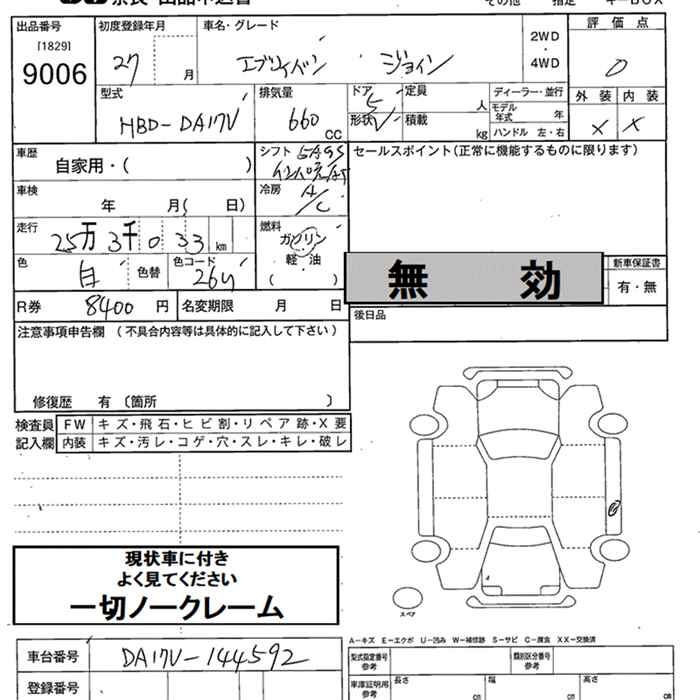 奈良 出品申込書
その他 指定 キーBOX
出品番号
[1829]
9006
初度登録年月
27 月
車名・グレード
エブリイバン ジョイン
2WD
・
4WD
評価点
0
外装 内装
× ×
型式
HBD-DA17V
排気量
660
CC
ドア
5
形状
V
定員
人
積載
kg
ディーラー・並行
モデル年式 年
ハンドル 左・右
車歴
自家用・( )
車検
年 月( 日)
走行
25万3千033 km
色
白
色替
色コード
26U
シフト 5AGS
冷房
A/C
燃料
ガソリン
軽・油
( )
セールスポイント(正常に機能するものに限ります)
無 効
新車保証書
有・無
R券 8400 円
名変期限 月 日
後日品
注意事項申告欄 (不具合内容等は具体的に記入して下さい)
修復歴 有 〔箇所 〕
検査員
記入欄
FW キズ・飛石・ヒビ割・リペア跡・X要
内装 キズ・汚レ・コゲ・穴・スレ・キレ・破レ
現状車に付き
よく見てください
一切ノークレーム
スペア
A-キズ E-エクボ U-凹み W-補修跡 S-サビ C-腐食 XX-交換済
車台番号 DA17V-144592
登録番号
型式指定番号
参考
類別区分番号
参考
車庫証明用
参考
長さ cm
幅 cm
高さ cm